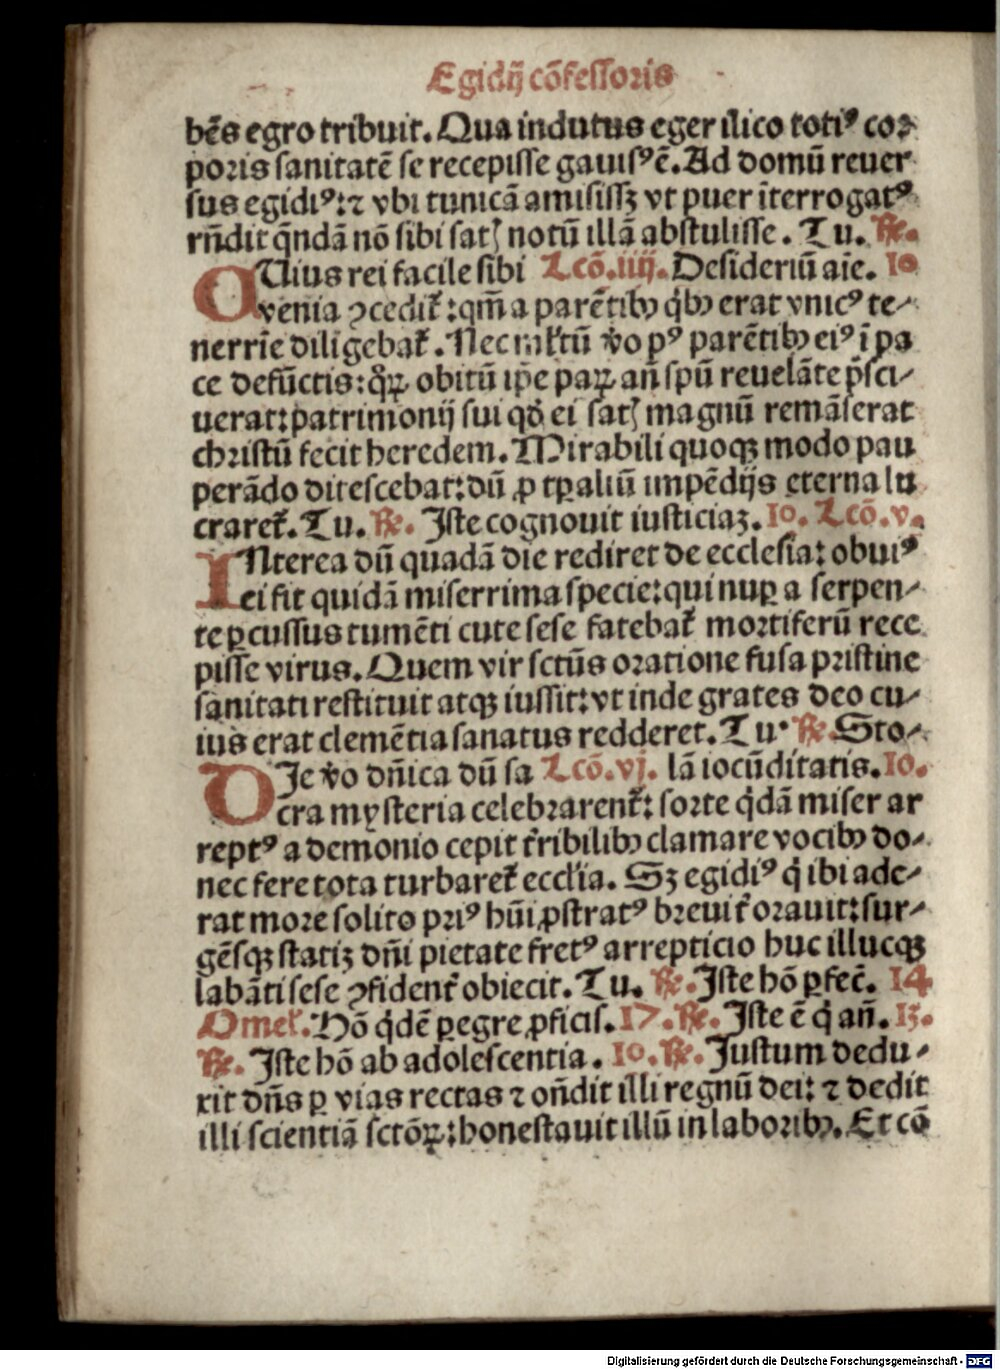 Egidij cōfessoris
bēs egro tribuit. Qua indutus eger ilico totiꝰ cor⸗
poris sanitatē se recepisse gauisꝰ ē. Ad domū reuer
sus egidiꝰ: ⁊ vbi tunicā amisissꝫ vt puer īterrogatꝰ
rn̄dit q̄ndā nō sibi satꝭ notū illā abstulisse. Tu. ℟.
CUius rei facile sibi Lcō.iiij. Desideriū aīe. 10
venia ꝯcedit᷑: qm̄ a parētibꝰ qͥbꝰ erat vnicꝰ te⸗
nerrīe diligebat᷑. Nec ml̓tū v̊o pꝰ parētibꝰ eiꝰ ī pa
ce defūctis: qͦꝝ obitū ip̄e paꝝ an̄ spū reuelāte p̄sci⸗
uerat: patrimonij sui qd̓ ei satꝭ magnū remāserat
christū fecit heredem. Mirabili quoqꝫ modo pau
perādo ditescebat: dū ꝓ tꝑaliū impēdijs eterna lu
craret᷑. Tu. ℟. Iste cognouit iusticiaꝫ. 10. Lcō.v.
INterea dū quadā die rediret de ecclesia: obuiꝰ
ei fit quidā miserrima specie: qui nuꝑ a serpen⸗
te ꝑcussus tumēti cute sese fatebat᷑ mortiferū rece
pisse virus. Quem vir sctūs oratione fusa pristine
sanitati restituit atqꝫ iussit: vt inde grates deo cu⸗
ius erat clemētia sanatus redderet. Tu. ℟. Sto⸗
DIe v̊o dn̄ica dū sa Lcō.vj. lā iocūditatis. 10.
cra mysteria celebrarent᷑: forte qͥdā miser ar
reptꝰ a demonio cepit t̓ribilibꝰ clamare vocibꝰ do⸗
nec fere tota turbaret᷑ eccl̓ia. Sꝫ egidiꝰ qͥ ibi ade⸗
rat more solito priꝰ hūi ꝓstratꝰ breuit̓ orauit: sur⸗
gēsqꝫ statiꝫ dn̄i pietate fretꝰ arrepticio huc illucqꝫ
labāti sese ꝯfident̓ obiecit. Tu. ℟. Iste hō ꝑfec̄. 14
Omel᷑. Hō qͥdē ꝑegre ꝓficis. 17. ℟. Iste ē qͥ an̄. 13.
℟. Iste hō ab adolescentia. 10. ℟. Iustum dedu⸗
xit dn̄s ꝑ vias rectas ⁊ on̄dit illi regnū dei: ⁊ dedit
illi scientiā sctōꝝ: honestauit illū in laboribꝰ. Et cō
Digitalisierung gefördert durch die Deutsche Forschungsgemeinschaft - DFG